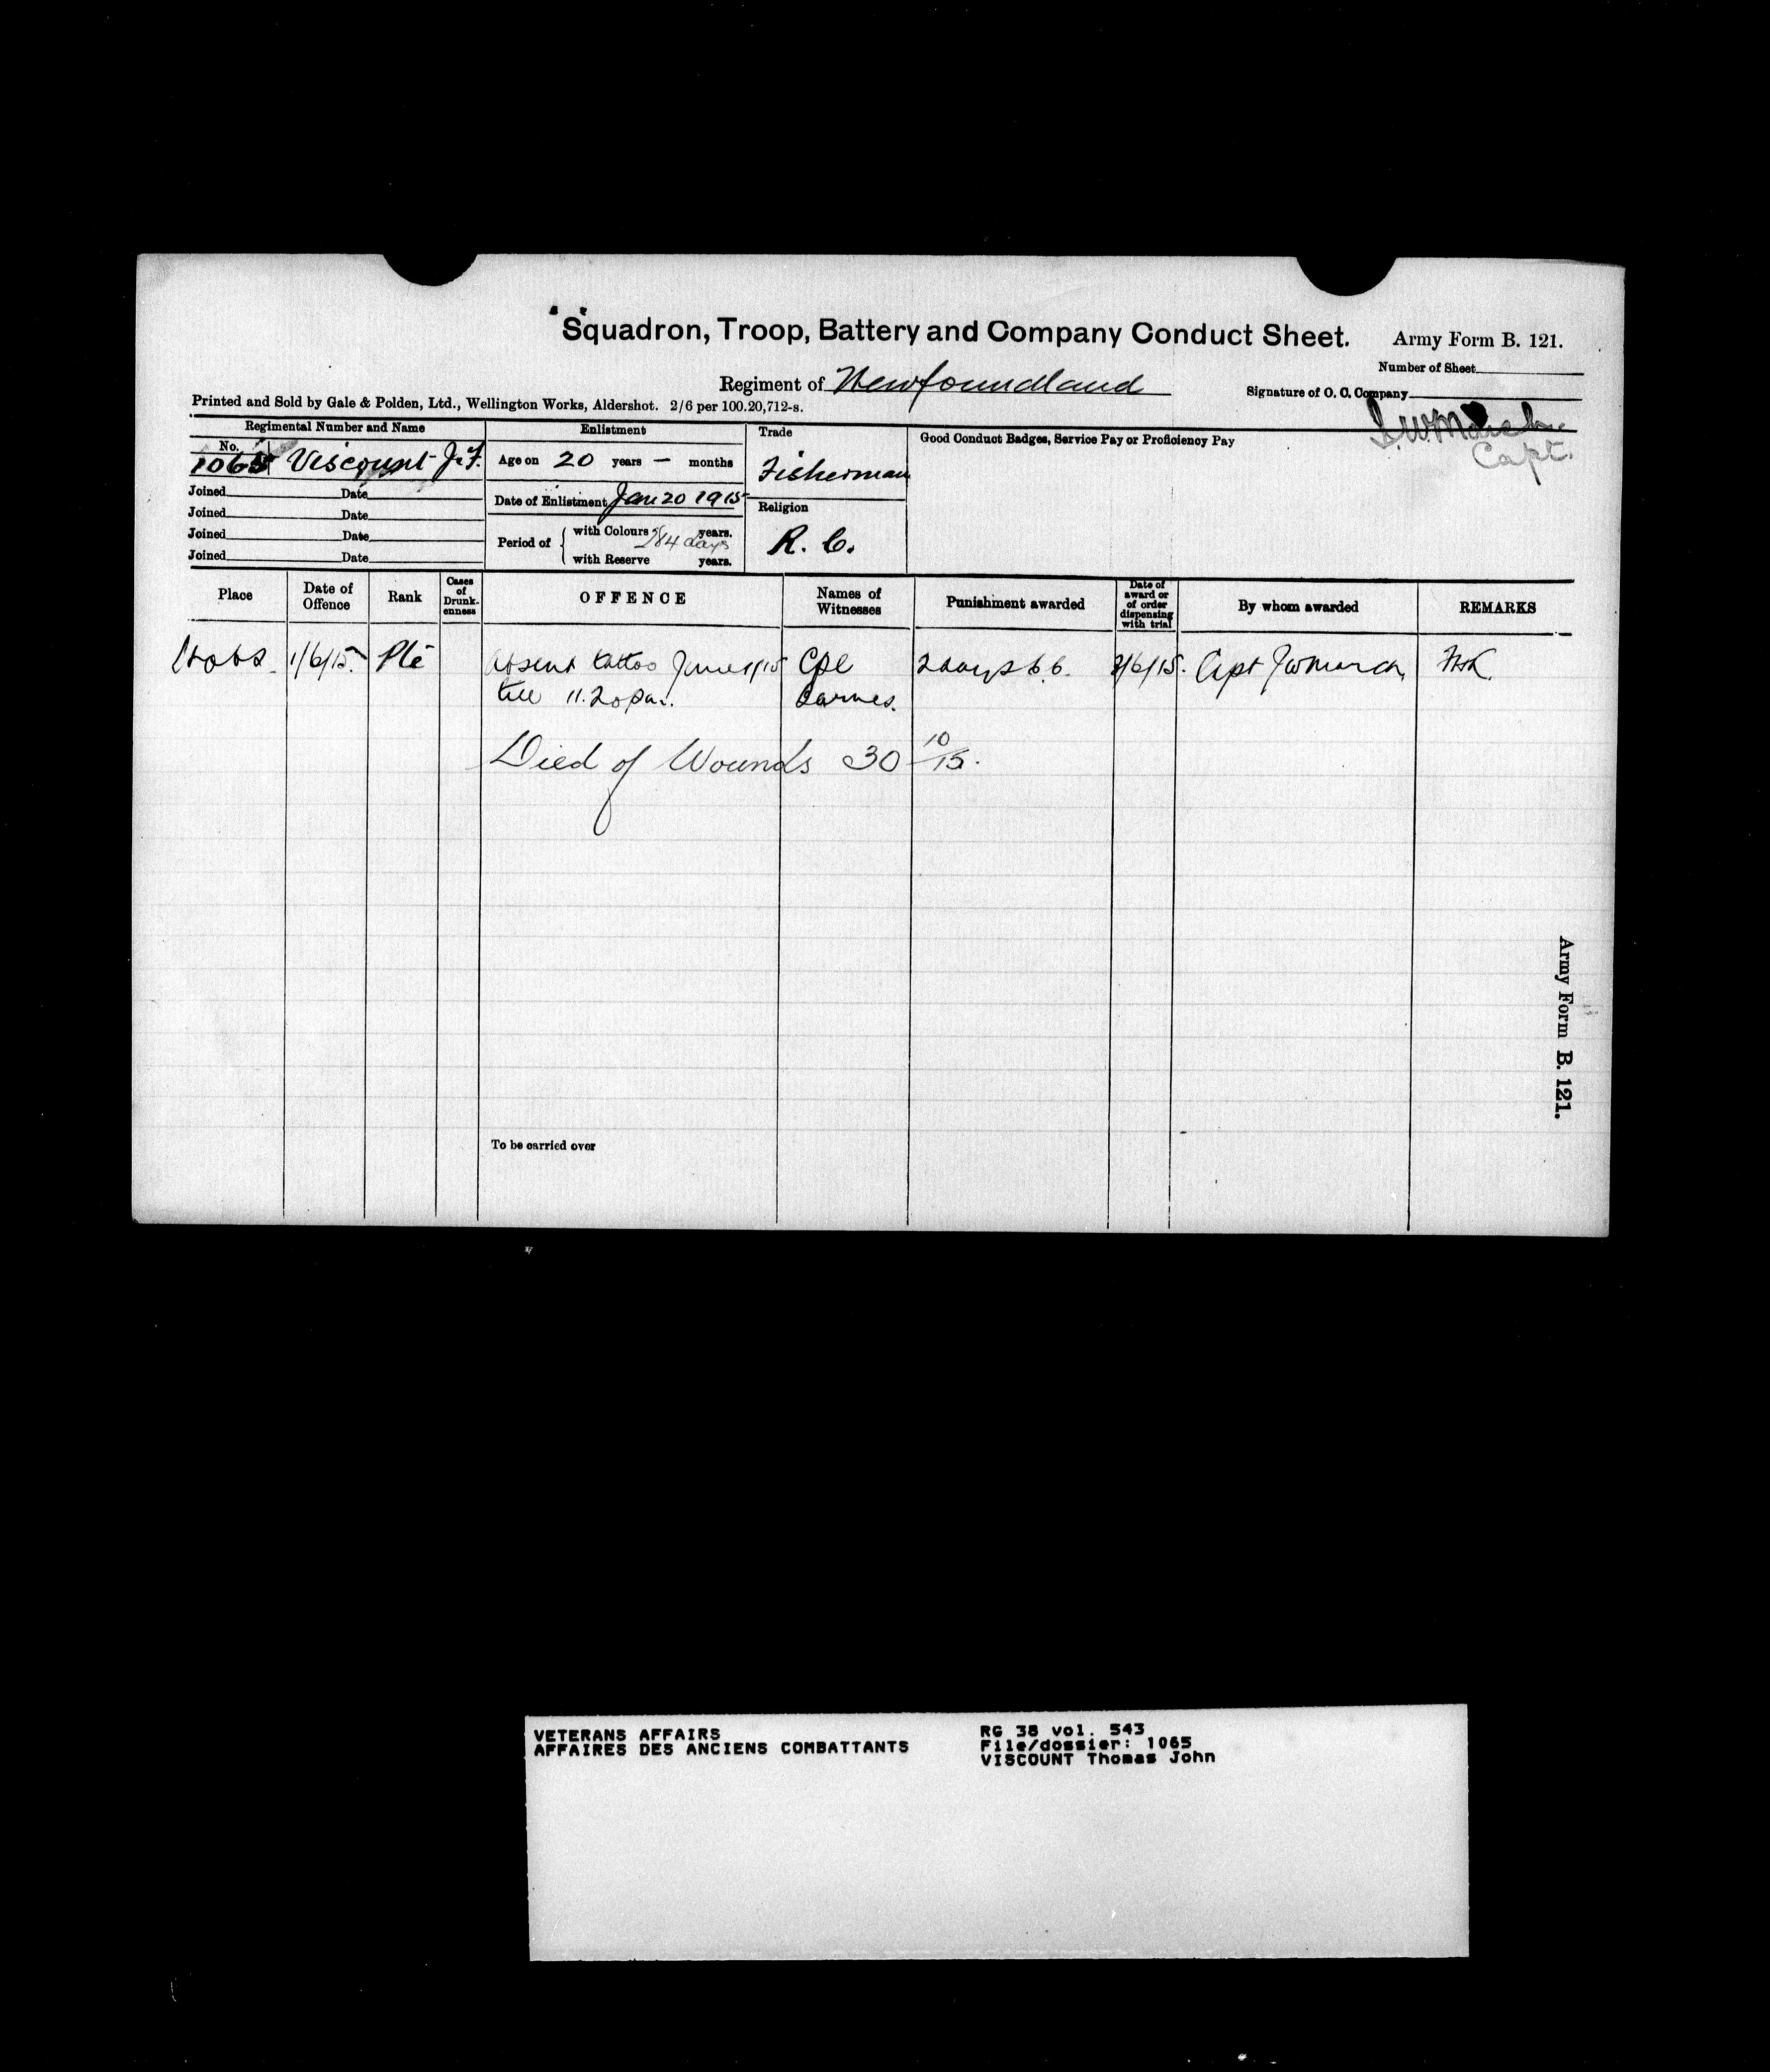 "Squadron, Troop, Battery and Company Conduct Sheet.
Army Form B. 121.
Number of Sheet
Regiment of Newfoundland
Signature of O. C. Company
Printed and Sold by Gale & Polden, Ltd., Wellington Works, Aldershot. 2/6 per 100.20,712-s.
J W March
Capt.
Regimental Number and Name
Enlistment
Trade
Good Conduct Badges, Service Pay or Proficiency Pay
No.
1065 Viscount J.T.
Age on 20 years — months
Fisherman
Joined Date
Date of Enlistment Jan 20 1915
Religion
Joined Date
Joined Date
Period of with Colours 284 days years.
R. C.
Joined Date
with Reserve years.
Place
Date of Offence
Rank
Cases of Drunk-enness
OFFENCE
Names of Witnesses
Punishment awarded
Date of award or of order dispensing with trial
By whom awarded
REMARKS
Stobs 1/6/15. Pte Absent tattoo June 1/15 Cpl 2 days C.C. 2/6/15. Capt J W March
till 11.20 p.m. Barnes.
Died of Wounds 30 10/15.
To be carried over
Army Form B. 121.
VETERANS AFFAIRS
AFFAIRES DES ANCIENS COMBATTANTS
RG 38 vol. 543
File/dossier: 1065
VISCOUNT Thomas John